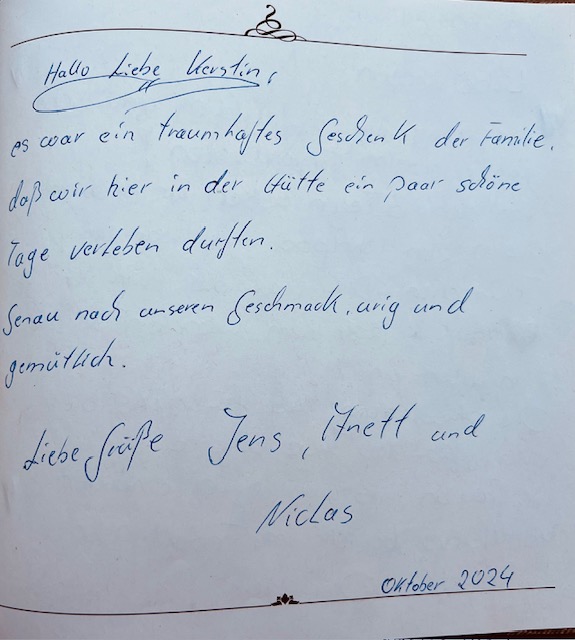 Hallo Liebe Kerstin,
es war ein traumhaftes Geschenk der Familie,
daß wir hier in der Hütte ein paar schöne
Tage verleben durften.
Genau nach unseren Geschmack, urig und
gemütlich.
Liebe Grüße Jens, Anett und
Niclas
Oktober 2024